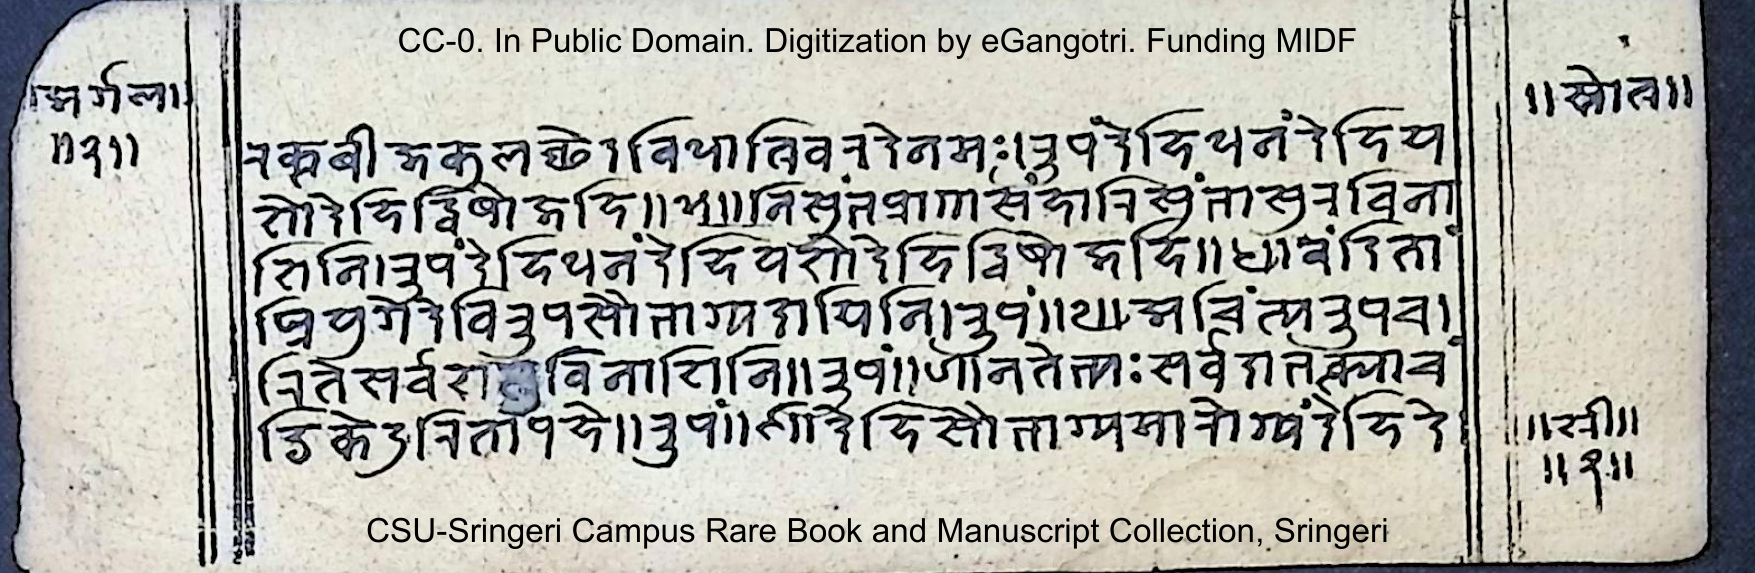 CC-0. In Public Domain. Digitization by eGangotri. Funding MIDF
।अर्गला।
॥२॥
॥स्तोत्र॥
रक्तबीजकुलच्छेदाविधात्रिवरदेनमः।रुपंदेहिधनंदेहिय
शोदेहिद्विषोजहि॥५॥निसुंभप्राणसंहारिसुंभासुरविना
शिनि।रुपंदेहिधनंदेहियशोदेहिद्विषोजहि॥६॥वंदितां
घ्रियुगेदेविरुपसौभाग्यदायिनि।रुपं॥७॥अचिंत्यरुपच
रितेसर्वविनाशिनि॥रुपं॥८॥नतेभ्यःसर्वदाभक्त्याचं
डिकेदुरितापहे॥रुपं॥९॥देहिसौभाग्यमारोग्यंदेहिदे
॥श्री॥
॥२॥
CSU-Sringeri Campus Rare Book and Manuscript Collection, Sringeri